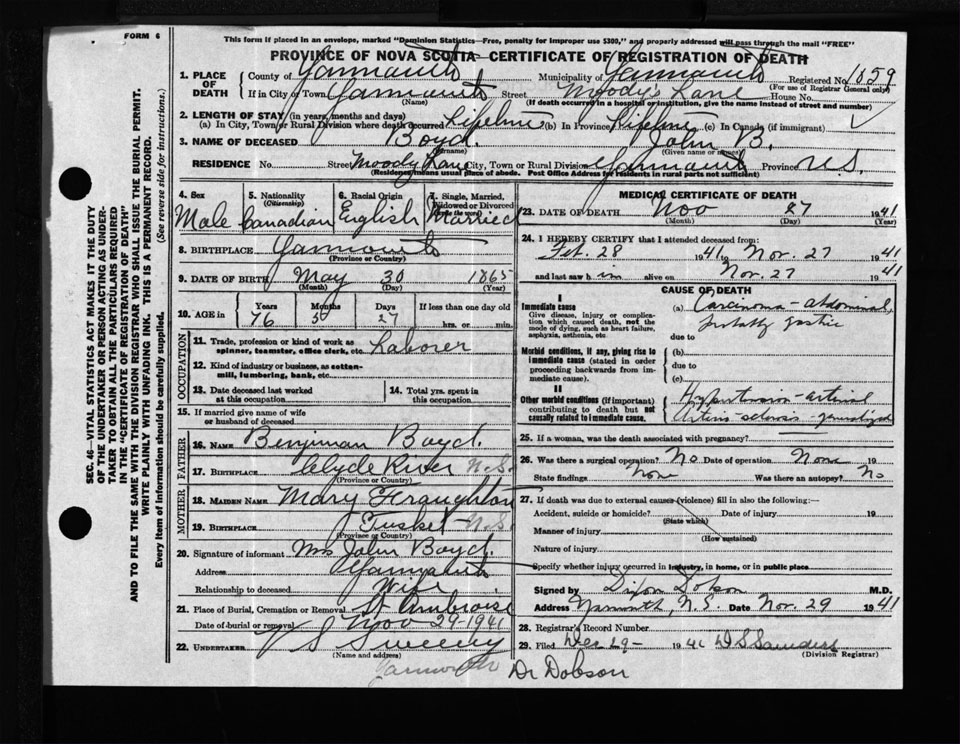 FORM 6
This form if placed in an envelope, marked "Dominion Statistics—Free, penalty for improper use $300," and properly addressed will pass through the mail "FREE"
PROVINCE OF NOVA SCOTIA—CERTIFICATE OF REGISTRATION OF DEATH
1. PLACE OF DEATH County of Yarmouth Municipality of Yarmouth Registered No. 1859
(For use of Registrar General only)
If in City or Town Yarmouth Street Moody's Lane House No.
(Name) (If death occurred in a hospital or institution, give the name instead of street and number)
2. LENGTH OF STAY (in years, months and days)
(a) In City, Town or Rural Division where death occurred Lifetime (b) In Province Lifetime (c) In Canada (if immigrant)
3. NAME OF DECEASED Boyd. John B.
(Surname) (Given name or names)
RESIDENCE No. Street Moody Lane City, Town or Rural Division Yarmouth Province N.S.
(Residence means usual place of abode. Post Office Address for residents in rural parts not sufficient)
4. Sex Male
5. Nationality (Citizenship) Canadian
6. Racial Origin English
7. Single, Married, Widowed or Divorced (write the word) Married
8. BIRTHPLACE Yarmouth
(Province or Country)
9. DATE OF BIRTH May 30 1865
(Month) (Day) (Year)
10. AGE in Years Months Days If less than one day old
76 5 27 hrs. or min.
OCCUPATION
11. Trade, profession or kind of work as spinner, teamster, office clerk, etc. Laborer
12. Kind of industry or business, as cotton-mill, lumbering, bank, etc.
13. Date deceased last worked at this occupation
14. Total yrs. spent in this occupation
15. If married give name of wife or husband of deceased
FATHER
16. NAME Benjiman Boyd.
17. BIRTHPLACE Clyde River N.S.
(Province or Country)
MOTHER
18. MAIDEN NAME Mary Fraughton
19. BIRTHPLACE Tusket - N.S.
(Province or Country)
20. Signature of informant Mrs John Boyd.
Address Yarmouth
Relationship to deceased Wife
21. Place of Burial, Cremation or Removal St Ambroise
Date of burial or removal Nov 29 - 1941
22. UNDERTAKER V S Sweeny
(Name and address)
Yarmouth
Dr Dobson
MEDICAL CERTIFICATE OF DEATH
23. DATE OF DEATH Nov 27 1941
(Month) (Day) (Year)
24. I HEREBY CERTIFY that I attended deceased from:
Feb. 28 1941 to Nov. 27 1941
and last saw him alive on Nov. 27 1941
CAUSE OF DEATH
I
Immediate cause
Give disease, injury or complication which caused death, not the mode of dying, such as heart failure, asphyxia, asthenia, etc
(a) Carcinoma - abdominal, probably gastric
due to
Morbid conditions, if any, giving rise to immediate cause (stated in order proceeding backwards from immediate cause).
(b)
due to
(c)
II
Other morbid conditions (if important) contributing to death but not causally related to immediate cause.
Hypertension - arterial
Arterio-sclerosis - generalized
25. If a woman, was the death associated with pregnancy?
26. Was there a surgical operation? No Date of operation None 19
State findings None Was there an autopsy? No
27. If death was due to external causes (violence) fill in also the following:
Accident, suicide or homicide? Date of injury 19
(State which)
Manner of injury
(How sustained)
Nature of injury
Specify whether injury occurred in industry, in home, or in public place
Signed by Dixon Dobson M.D.
Address Yarmouth, N.S. Date Nov. 29 1941
28. Registrar's Record Number
29. Filed Dec 29 - 1941 D S Saunders
(Division Registrar)
SEC. 46—VITAL STATISTICS ACT MAKES IT THE DUTY
OF THE UNDERTAKER OR PERSON ACTING AS UNDER-
TAKER TO OBTAIN ALL THE PARTICULARS REQUIRED
IN THE "CERTIFICATE OF REGISTRATION OF DEATH"
AND TO FILE THE SAME WITH THE DIVISION REGISTRAR WHO SHALL ISSUE THE BURIAL PERMIT.
WRITE PLAINLY WITH UNFADING INK. THIS IS A PERMANENT RECORD.
Every item of information should be carefully supplied. (See reverse side for instructions.)